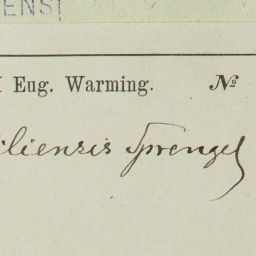 ENSI
Eug. Warming. №
iliensis Sprengel